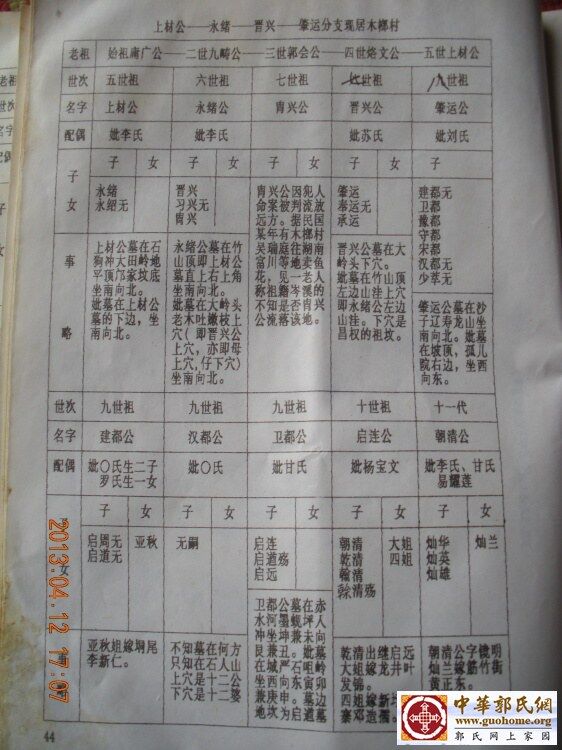 上材公——永绪——晋兴——肇运分支现居木榔村
老祖 始祖庵广公——二世九畴公——三世郭会公——四世烙文公——五世上材公
世次 五世祖 六世祖 七世祖 七世祖 八世祖
名字 上材公 永绪公 肯兴公 晋兴公 肇运公
配偶 妣李氏 妣李氏 妣苏氏 妣刘氏
子女 子 女 子 女 子 女 子
永绪
永绍无
晋兴
习兴无
肯兴
肯兴公因犯人
命案被判流放
远方。据民国
某年有木榔村
吴瑞庭往湖南
富川等地卖鱼
花，见一老人
称祖籍岑溪的
不知是否肯兴
公流落该地。
肇运
泰运无
承运
建都无
卫都
豫都
守都
宋都
汉都无
少莘无
事略
上材公墓在石
狗冲大田岭地
平顶邝家坟底
坐南向北。
妣墓在上材公
墓的下边，坐
南向北。
永绪公墓在竹
山顶即上材公
墓直上右上角
坐南向北。
妣墓在大岭头
老木吐嫩枝上
穴(即晋兴公
上穴，亦即母
上穴,仔下穴)
坐南向北。
晋兴公墓在大
岭头下穴。
妣墓在竹山顶
左边山洼上穴
即永绪公左边
山洼。下穴是
昌权的祖坟。
肇运公墓在沙
子辽寿龙山坐
南向北。妣墓
在坡顶，孤儿
院右边，坐西
向东。
世次 九世祖 九世祖 九世祖 十世祖 十一代
名字 建都公 汉都公 卫都公 启连公 朝清公
配偶 妣〇氏生二子
罗氏生一女
妣〇氏 妣甘氏 妣杨宝文 妣李氏、甘氏
易耀莲
子 女 子 女 子 女 子 女 子 女
女
启周无
启道无
亚秋
无嗣
启连
启道殇
启远
朝清
乾清
翰清
大姐
四姐
灿华
灿英
灿雄
灿兰
亚秋姐嫁垌尾
李新仁。
不知墓在何方
只知在石人山
上穴是十二公
下穴是十二婆
卫都公墓在赤
水河墨蚬坪人
冲坐坤兼未向
艮兼丑。妣墓
在城严石咀岭
坐西向东寅卯
兼庚申。墓边
地坎为启道墓
乾清出继启远
大姐嫁龙井叶
发锦。
四姐嫁新
寨邓造儒
朝清公字镜明
灿兰嫁筋竹街
黄正东。
44
2013.04.12 17:07
中華郭氏網
www.guohome.org
郭氏网上家园